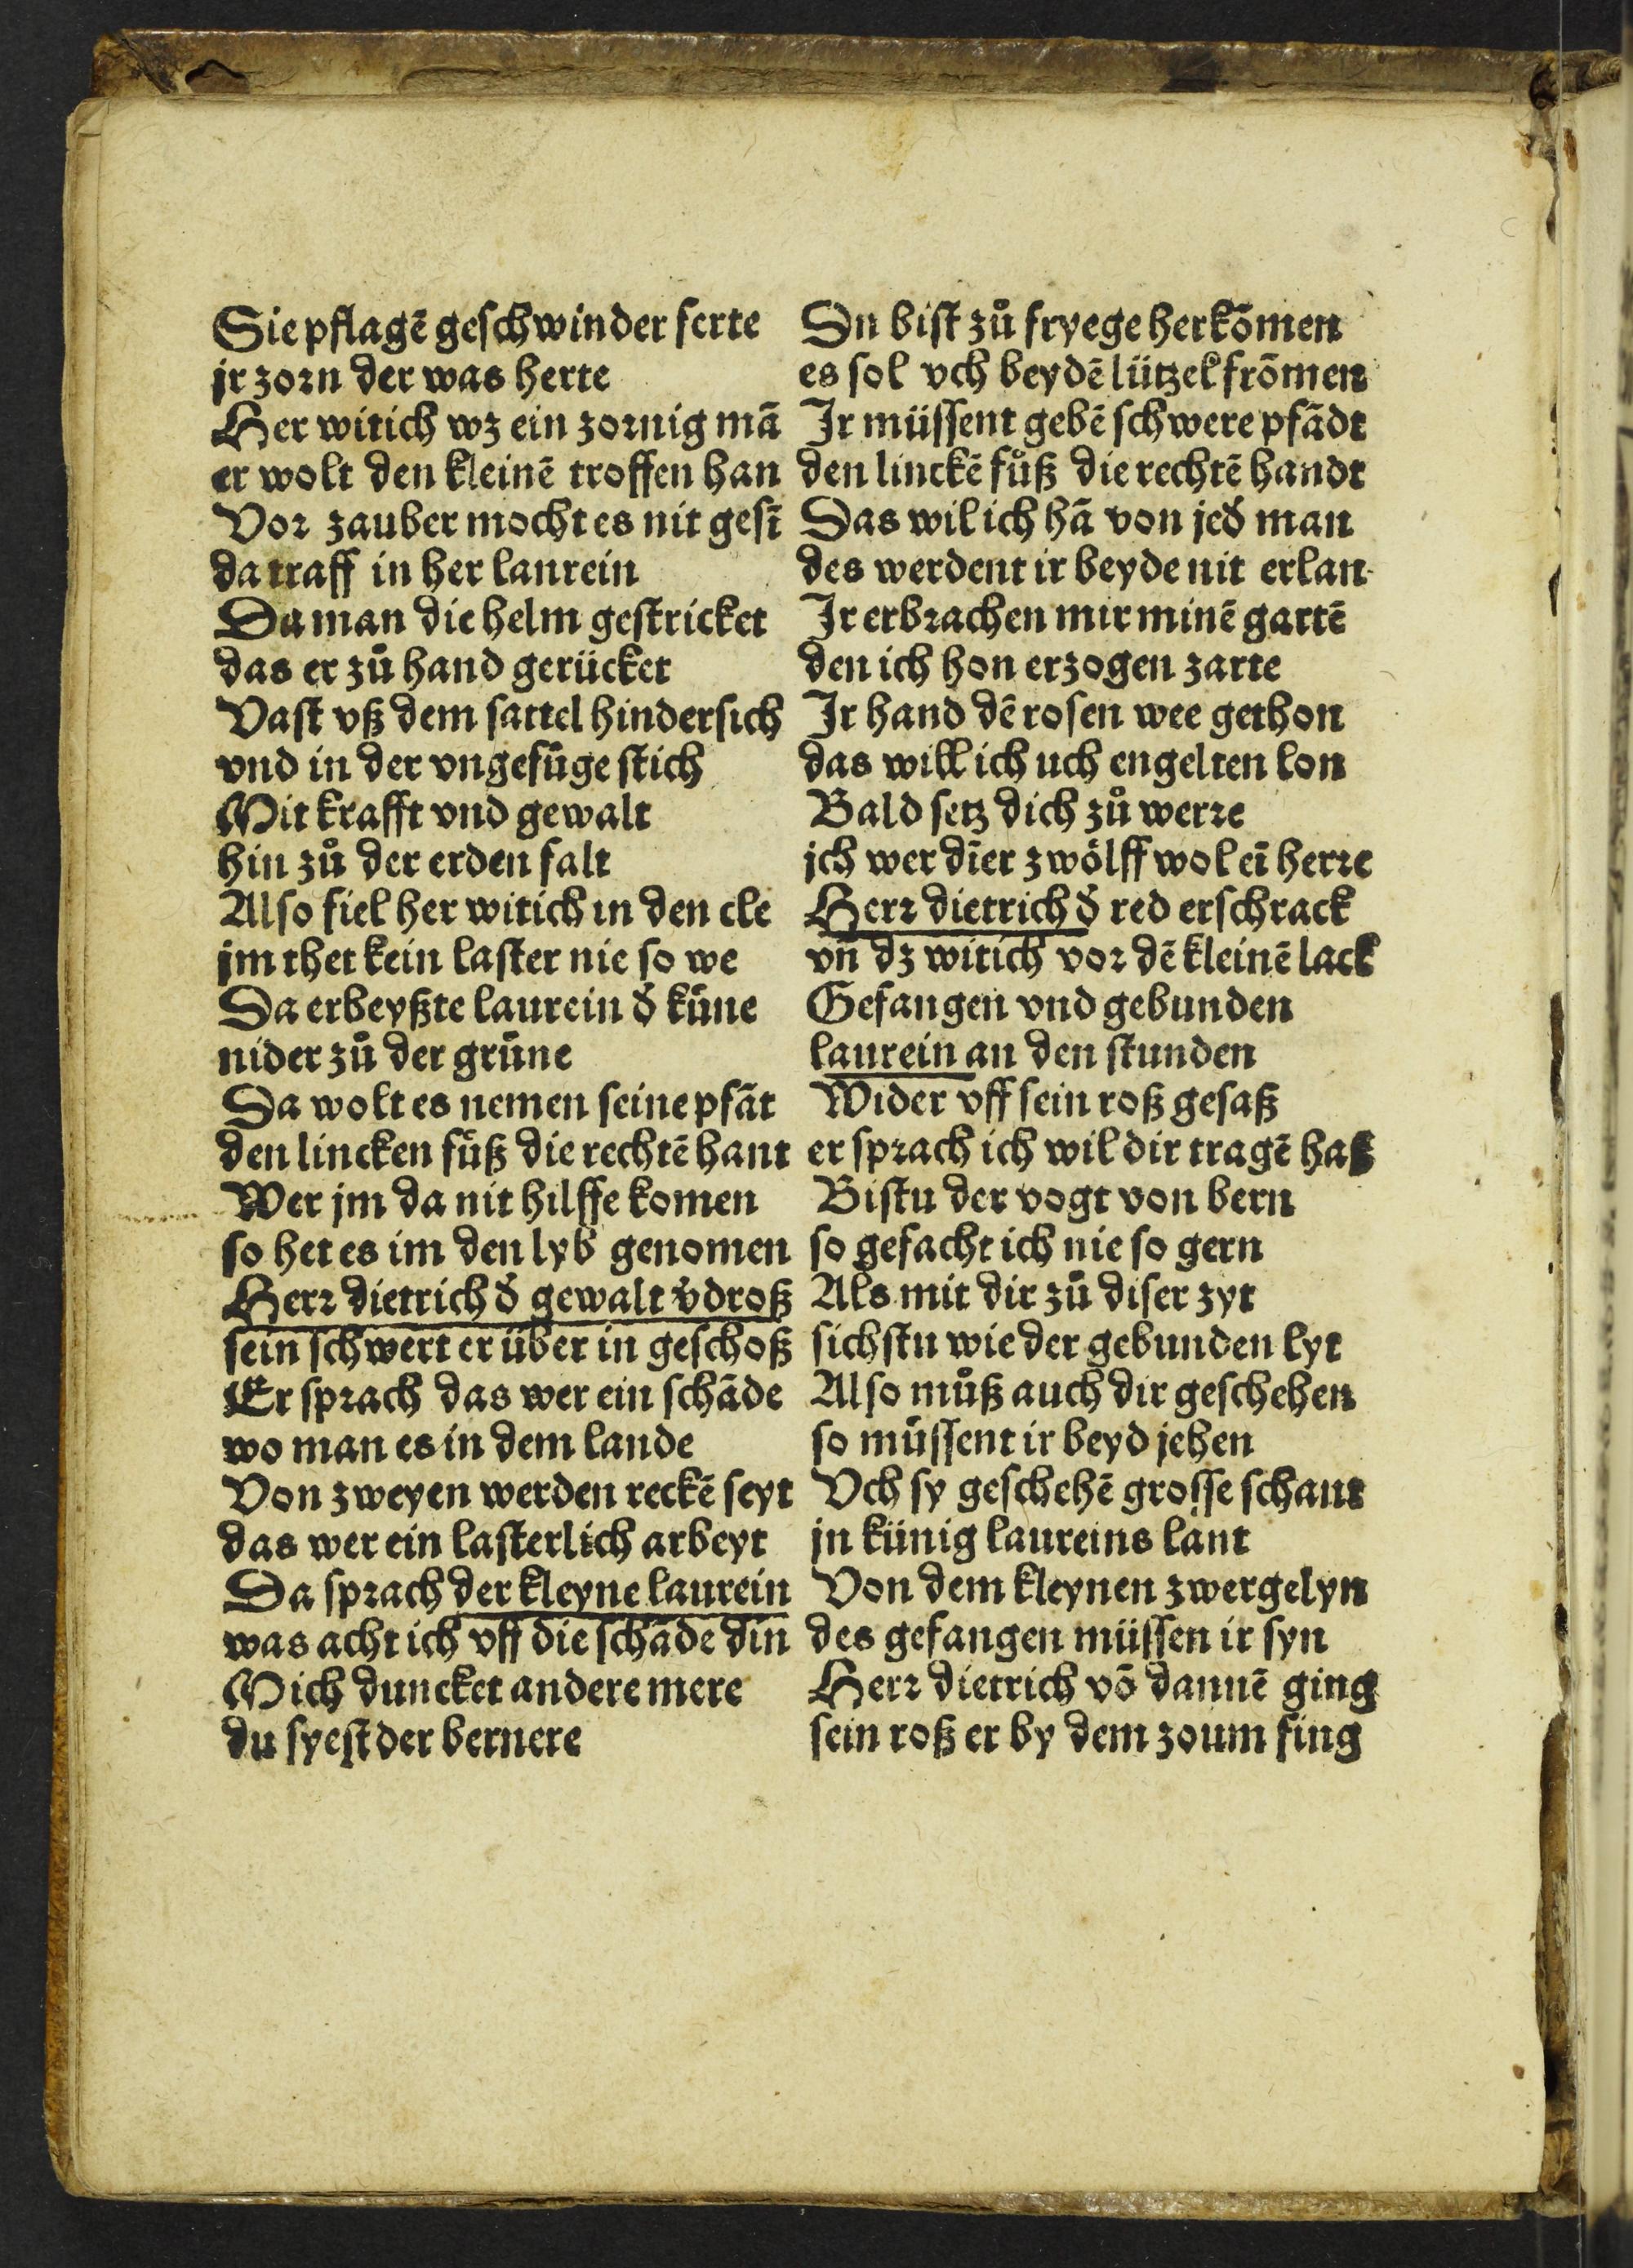 Sie pflagē geschwinder ferte
jr zorn der was herte
Her witich wz ein zornig mā
er wolt den kleinē troffen han
Vor zauber mocht es nit gesī
da traff in her laurein
Da man die helm gestricket
das er zů hand gerücket
Vast vß dem sattel hindersich
vnd in der vngefüge stich
Mit krafft vnd gewalt
hin zů der erden falt
Also fiel her witich in den cle
jm thet kein laster nie so we
Da erbeyßte laurein d̓ küne
nider zů der grüne
Da wolt es nemen seine pfāt
den lincken fůß die rechtē hant
Wer jm da nit hilffe komen
so het es im den lyb genomen
Herr dietrich d̓ gewalt v̓droß
sein schwert er über in geschoß
Er sprach das wer ein schāde
wo man es in dem lande
Von zweyen werden reckē seyt
das wer ein lasterlich arbeyt
Da sprach der kleyne laurein
was acht ich vff die schāde din
Mich duncket andere mere
du syest der bernere
Du bist zů fryege her kōmen
es sol vch beydē lützel frōmen
Ir müssent gebē schwere pfādt
den linckē fůß die rechtē handt
Das wil ich hā von jed̓ man
des werdent ir beyde nit erlan
Ir erbrachen mir minē gartē
den ich hon erzogen zarte
Ir hand dē rosen wee gethon
das will ich uch engelten lon
Bald setz dich zů werre
jch wer dīer zwölff wol eī herre
Herr dietrich d̓ red erschrack
vn̄ dz witich vor dē kleinē lack
Gefangen vnd gebunden
laurein an den stunden
Wider vff sein roß gesaß
er sprach ich wil dir tragē haß
Bistu der vogt von bern
so gefacht ich nie so gern
Als mit dir zů diser zyt
sichstu wie der gebunden lyt
Also můß auch dir geschehen
so müssent ir beyd jehen
Vch sy geschehē grosse schant
jn künig laureins lant
Von dem kleynen zwergelyn
des gefangen müssen ir syn
Herr dietrich vō dannē ging
sein roß er by dem zoum fing